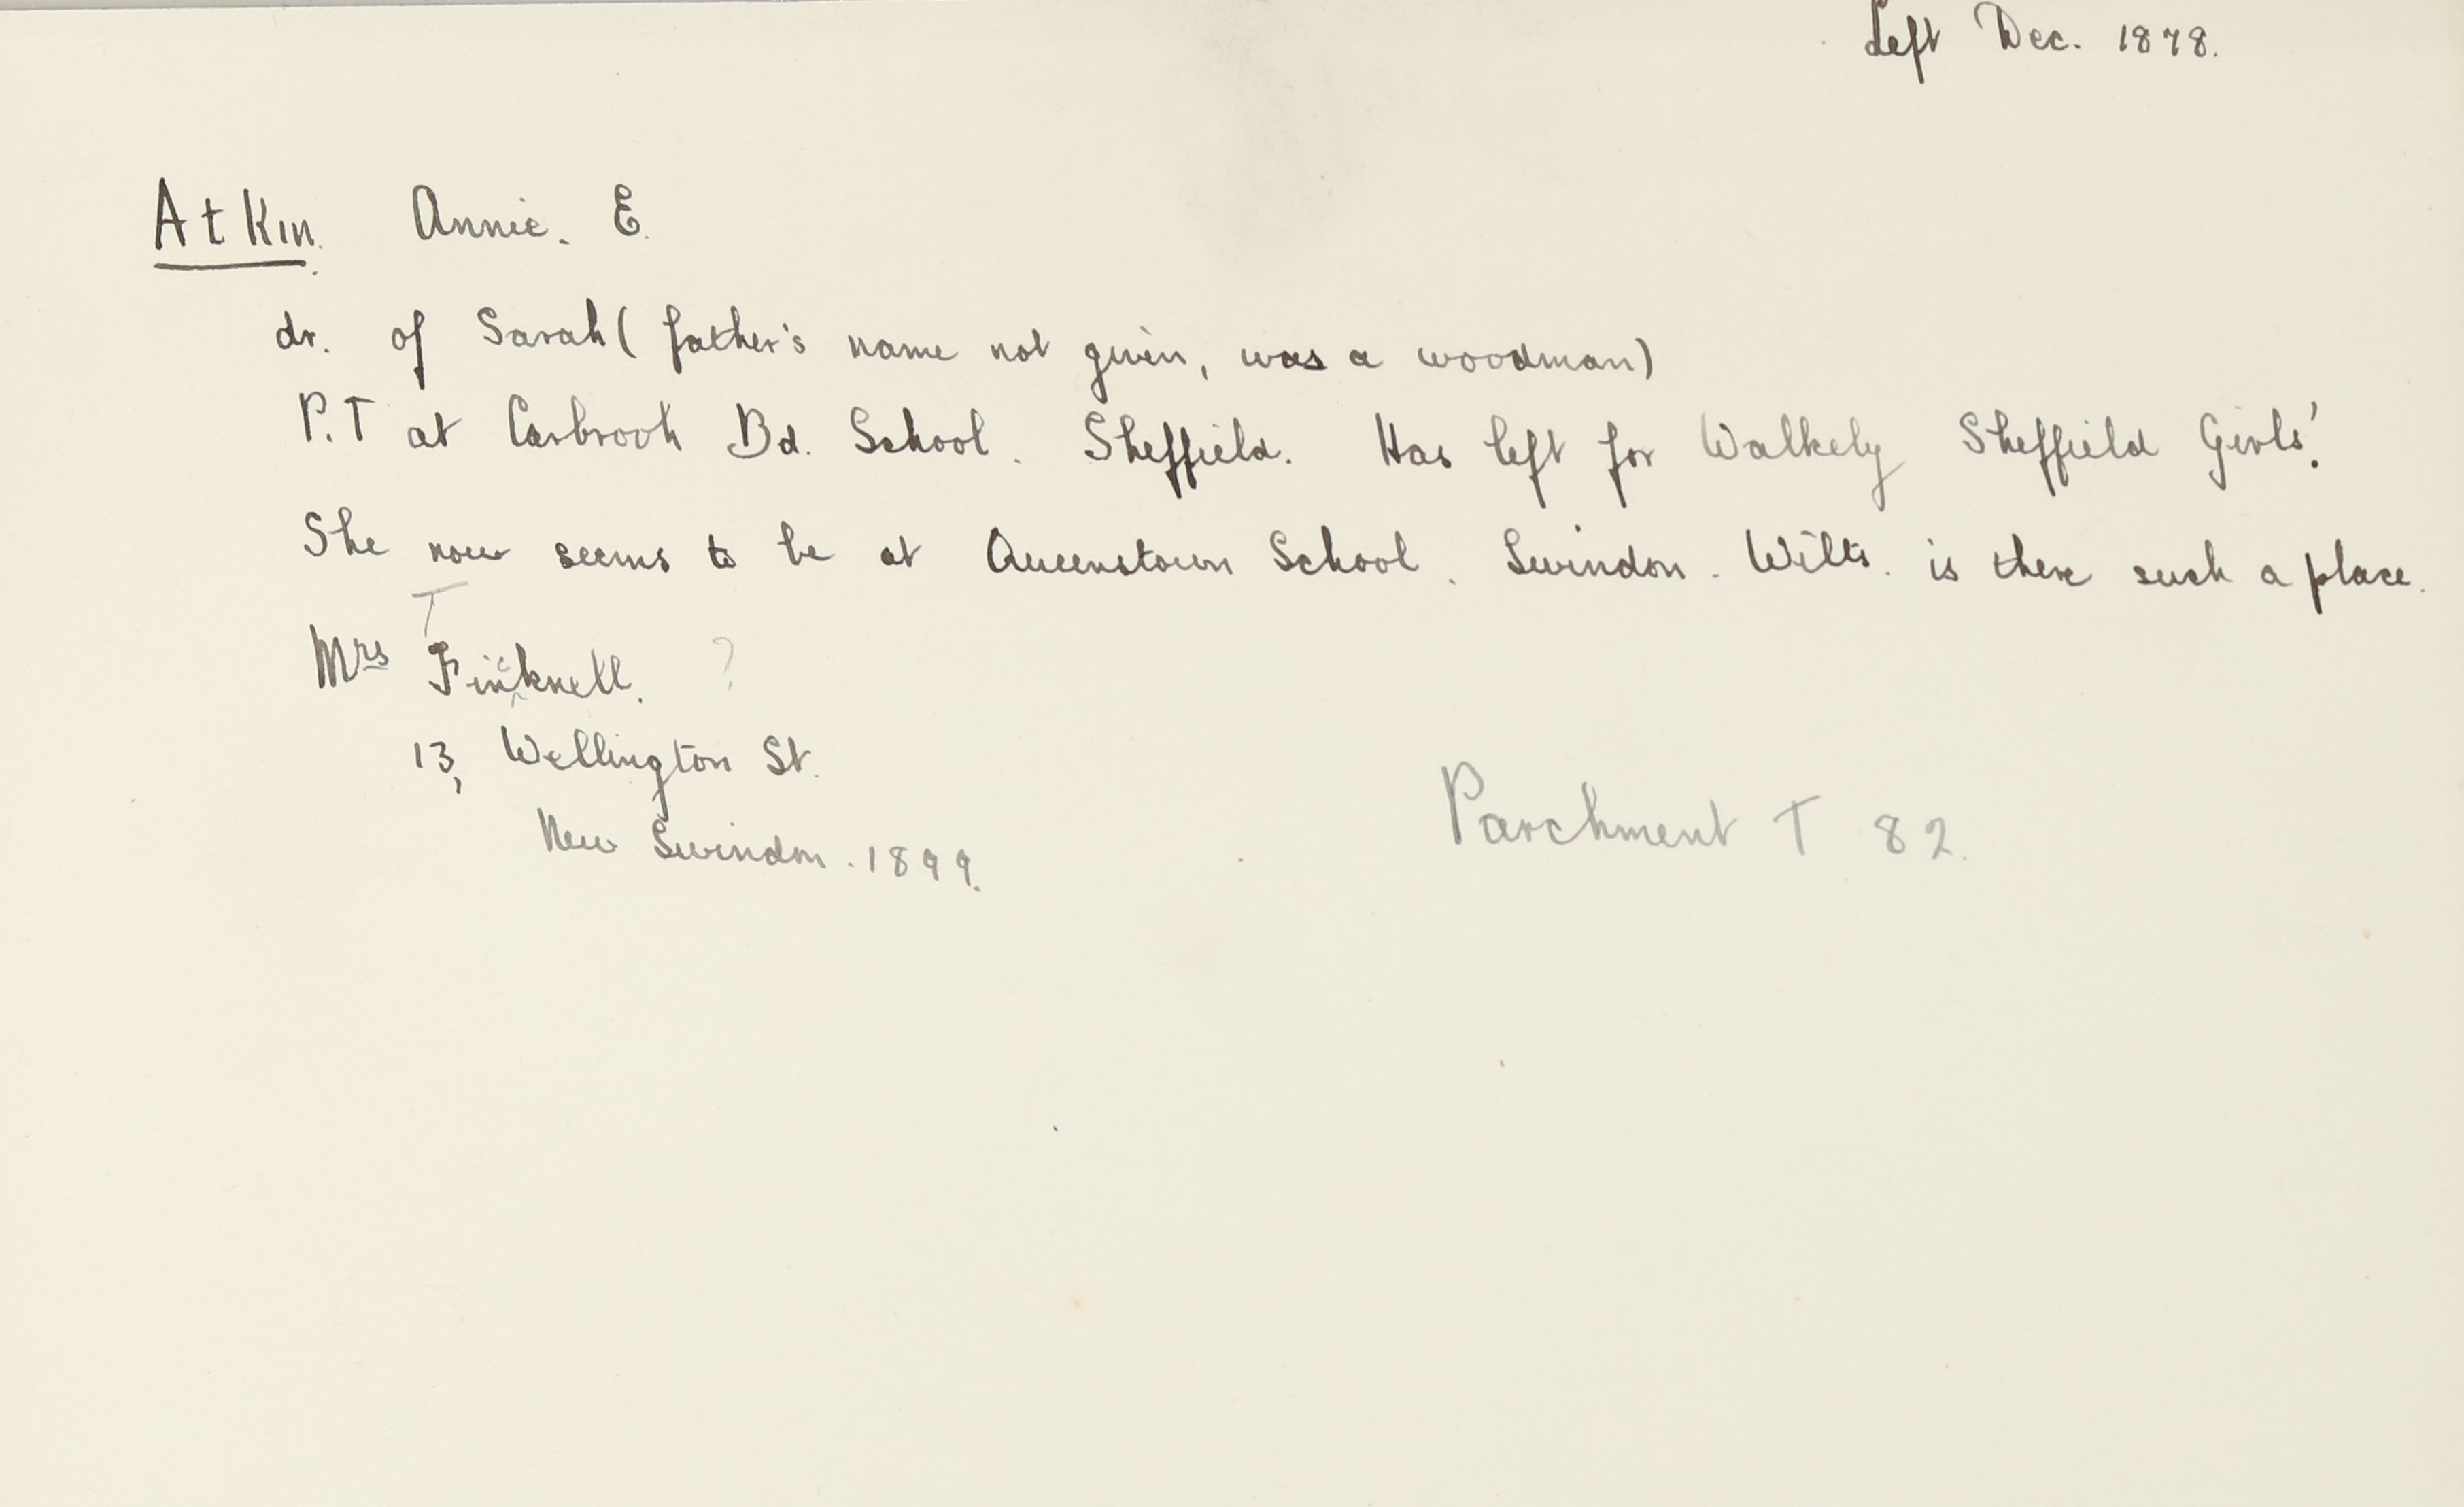 Left Dec. 1878.
Atkin. Annie. E.
dr. of Sarah ( father's name not given, was a woodman)
P.T at Carbrook Bd. School. Sheffield. Has left for Walkely Sheffield Girls'.
She now seems to be at Queenstown School. Swindon. Wilts. is there such a place.
T
Mrs Finknell. ?
c
13, Wellington St.
New Swindon. 1899.
Parchment T 82.